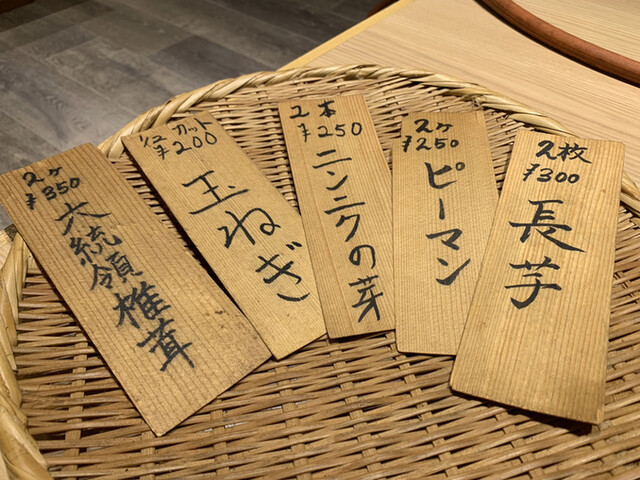 2ヶ
¥350
大統領椎茸
1/2カット
¥200
玉ねぎ
2本
¥250
ニンニクの芽
2ヶ
¥250
ピーマン
2枚
¥300
長芋